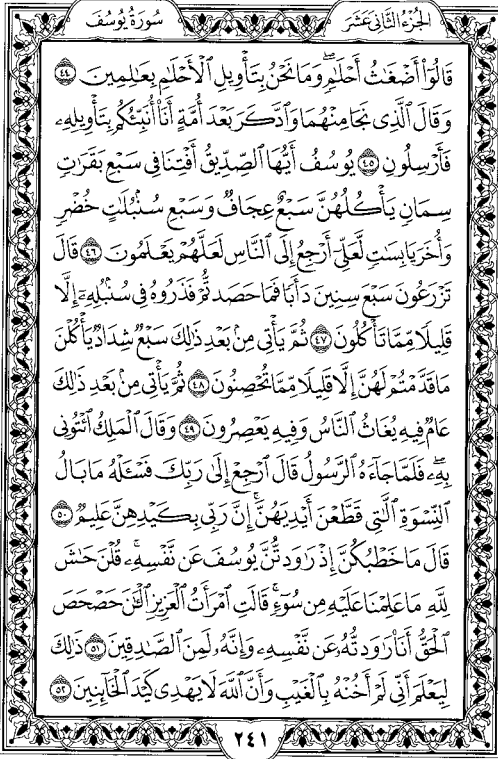 الجزء الثاني عشر
سورة يوسف
قَالُوٓا۟ أَضْغَٰثُ أَحْلَٰمٍ ۖ وَمَا نَحْنُ بِتَأْوِيلِ ٱلْأَحْلَٰمِ بِعَٰلِمِينَ ٤٤
وَقَالَ ٱلَّذِى نَجَا مِنْهُمَا وَٱدَّكَرَ بَعْدَ أُمَّةٍ أَنَا۠ أُنَبِّئُكُم بِتَأْوِيلِهِۦ
فَأَرْسِلُونِ ٤٥ يُوسُفُ أَيُّهَا ٱلصِّدِّيقُ أَفْتِنَا فِى سَبْعِ بَقَرَٰتٍ
سِمَانٍ يَأْكُلُهُنَّ سَبْعٌ عِجَافٌ وَسَبْعِ سُنۢبُلَٰتٍ خُضْرٍ
وَأُخَرَ يَابِسَٰتٍ لَّعَلِّىٓ أَرْجِعُ إِلَى ٱلنَّاسِ لَعَلَّهُمْ يَعْلَمُونَ ٤٦ قَالَ
تَزْرَعُونَ سَبْعَ سِنِينَ دَأَبًا فَمَا حَصَدتُّمْ فَذَرُوهُ فِى سُنۢبُلِهِۦٓ إِلَّا
قَلِيلًا مِّمَّا تَأْكُلُونَ ٤٧ ثُمَّ يَأْتِى مِنۢ بَعْدِ ذَٰلِكَ سَبْعٌ شِدَادٌ يَأْكُلْنَ
مَا قَدَّمْتُمْ لَهُنَّ إِلَّا قَلِيلًا مِّمَّا تُحْصِنُونَ ٤٨ ثُمَّ يَأْتِى مِنۢ بَعْدِ ذَٰلِكَ
عَامٌ فِيهِ يُغَاثُ ٱلنَّاسُ وَفِيهِ يَعْصِرُونَ ٤٩ وَقَالَ ٱلْمَلِكُ ٱئْتُونِى
بِهِۦ ۖ فَلَمَّا جَآءَهُ ٱلرَّسُولُ قَالَ ٱرْجِعْ إِلَىٰ رَبِّكَ فَسْـَٔلْهُ مَا بَالُ
ٱلنِّسْوَةِ ٱلَّٰتِى قَطَّعْنَ أَيْدِيَهُنَّ ۚ إِنَّ رَبِّى بِكَيْدِهِنَّ عَلِيمٌ ٥٠
قَالَ مَا خَطْبُكُنَّ إِذْ رَٰوَدتُّنَّ يُوسُفَ عَن نَّفْسِهِۦ ۚ قُلْنَ حَٰشَ
لِلَّهِ مَا عَلِمْنَا عَلَيْهِ مِن سُوٓءٍ ۚ قَالَتِ ٱمْرَأَتُ ٱلْعَزِيزِ ٱلْـَٰٔنَ حَصْحَصَ
ٱلْحَقُّ أَنَا۠ رَٰوَدتُّهُۥ عَن نَّفْسِهِۦ وَإِنَّهُۥ لَمِنَ ٱلصَّٰدِقِينَ ٥١ ذَٰلِكَ
لِيَعْلَمَ أَنِّى لَمْ أَخُنْهُ بِٱلْغَيْبِ وَأَنَّ ٱللَّهَ لَا يَهْدِى كَيْدَ ٱلْخَآئِنِينَ ٥٢
٢٤١